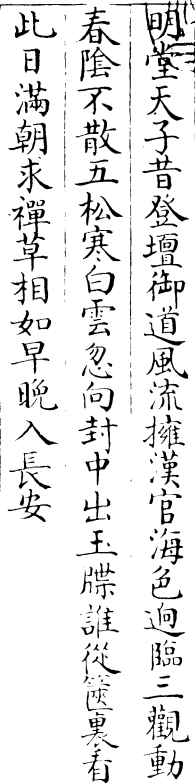 明堂天子昔登壇御道風流擁漢官海色迥臨三觀動
春陰不散五松寒白雲忽向封中出玉牒誰從篋裏看
此日滿朝求禪草相如早晚入長安